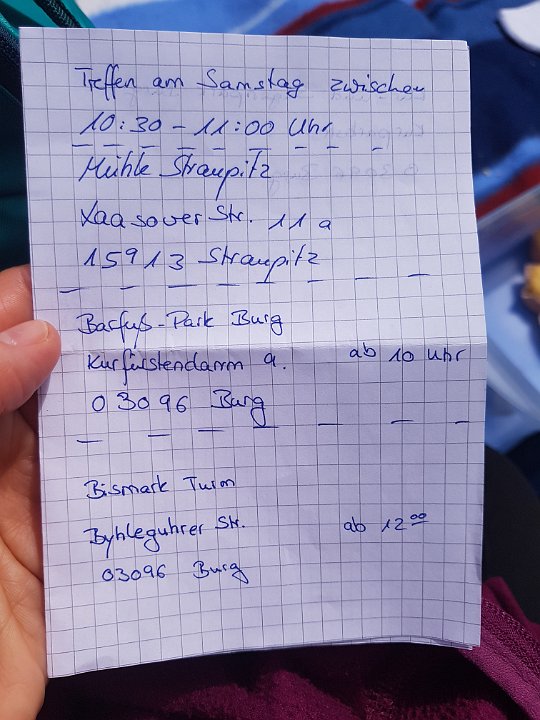 Treffen am Samstag zwischen
10:30 - 11:00 Uhr
Mühle Straupitz
Laasower Str. 11 a
15913 Straupitz
Barfuß-Park Burg
Kurfürstendamm 9. ab 10 Uhr
03096 Burg
Bismark Turm
Byhleguhrer Str. ab 12 00
03096 Burg